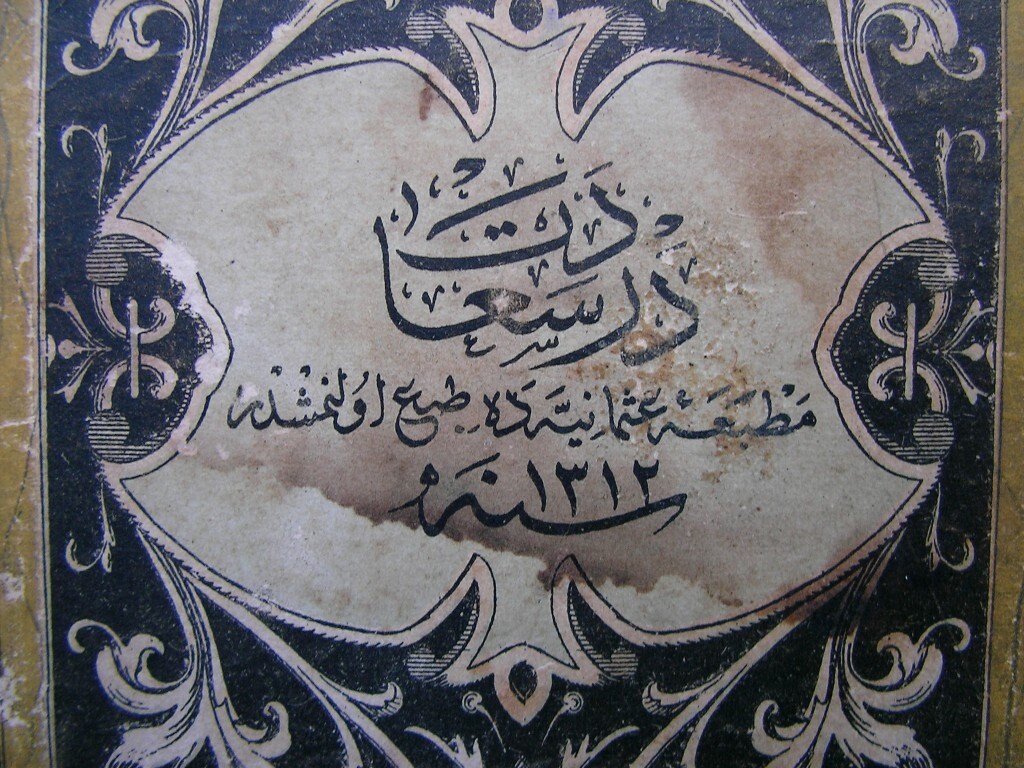 دَرسَعَادَت
مَطبَعَۀ عثمانیَّه دَه طبع اولنمشدر
سنه ١٣١٢